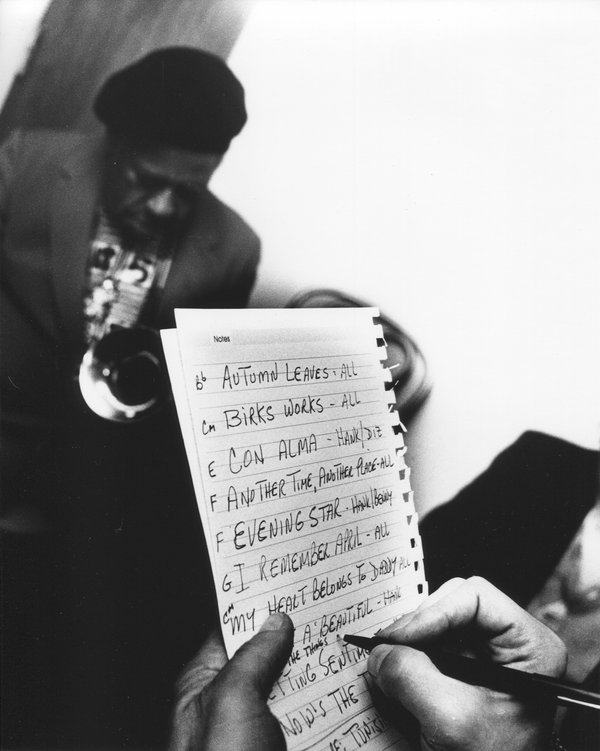 Notes
Bb AUTUMN LEAVES - ALL
Cm BIRKS WORKS - ALL
E CON ALMA - HANK/DIZ
F ANOTHER TIME, ANOTHER PLACE - ALL
F EVENING STAR - HANK/BENNY
G I REMEMBER APRIL - ALL
Cm MY HEART BELONGS TO DADDY ALL
A BEAUTIFUL - HANK
THE THINGS
TTING SENTIM
NOW'S THE T